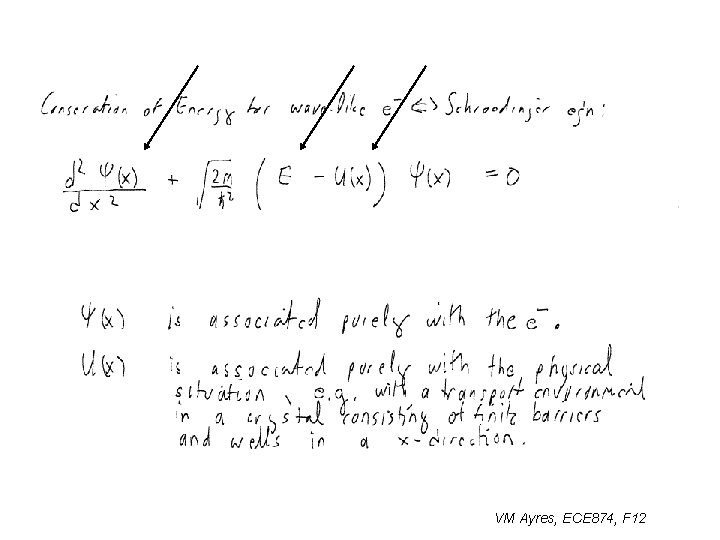 Conseration of Energy for wave-like e⁻ <=> Schroedinger eqn:
d² Ψ(x) / dx² + √(2m/ħ²) (E - U(x)) Ψ(x) = 0
Ψ(x) is associated purely with the e⁻.
U(x) is associated purely with the physical
situation, e.g. with a transport environment
in a crystal consisting of finite barriers
and wells in a x-direction.
VM Ayres, ECE874, F12